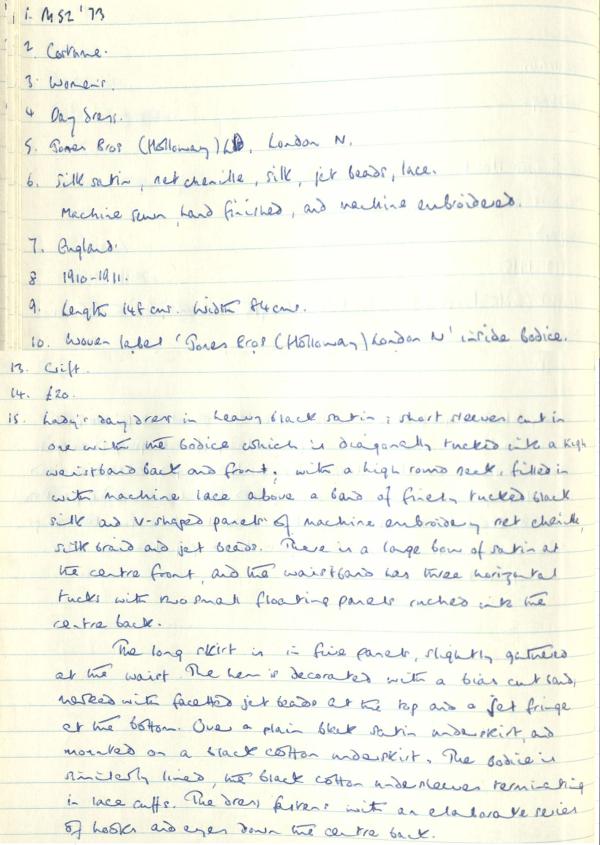 1. M52 '73
2. Costume.
3. Women's.
4 Day dress.
5. Jones Bros (Holloway) Ltd, London N.
6. Silk satin, net chenille, silk, jet beads, lace.
Machine sewn, hand finished, and machine embroidered.
7. England.
8 1910-1911.
9. Length 148 cms. Width 84 cms.
10. Woven label 'Jones Bros (Holloway) London N' inside bodice.
13. Gift.
14. £20.
15. Lady's day dress in heavy black satin; short sleeves cut in
one with the bodice which is diagonally tucked into a high
waistband back and front; with a high round neck, filled in
with machine lace above a band of finely tucked black
silk and V-shaped panels of machine embroidery net chenille,
silk braid and jet beads. There is a large bow of satin at
the centre front, and the waistband has three horizontal
tucks with two small floating panels ruched into the
centre back.
The long skirt is in five panels, slightly gathered
at the waist. The hem is decorated with a bias cut band,
marked with facetted jet beads at the top and a jet fringe
at the bottom. Over a plain black satin underskirt, and
mounted on a black cotton underskirt. The bodice is
similarly lined, the black cotton undersleeves terminating
in lace cuffs. The dress fastens with an elaborate series
of hooks and eyes down the centre back.